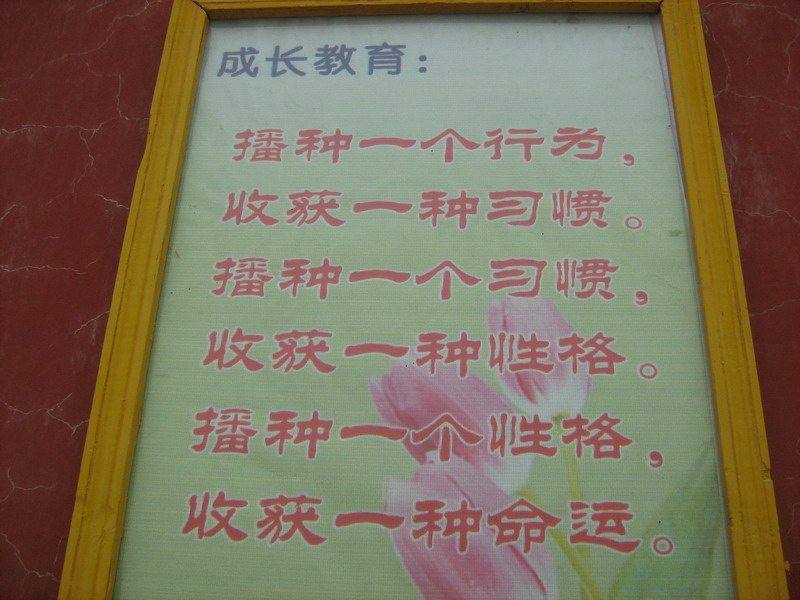 成长教育：
播种一个行为，
收获一种习惯。
播种一个习惯，
收获一种性格。
播种一个性格，
收获一种命运。